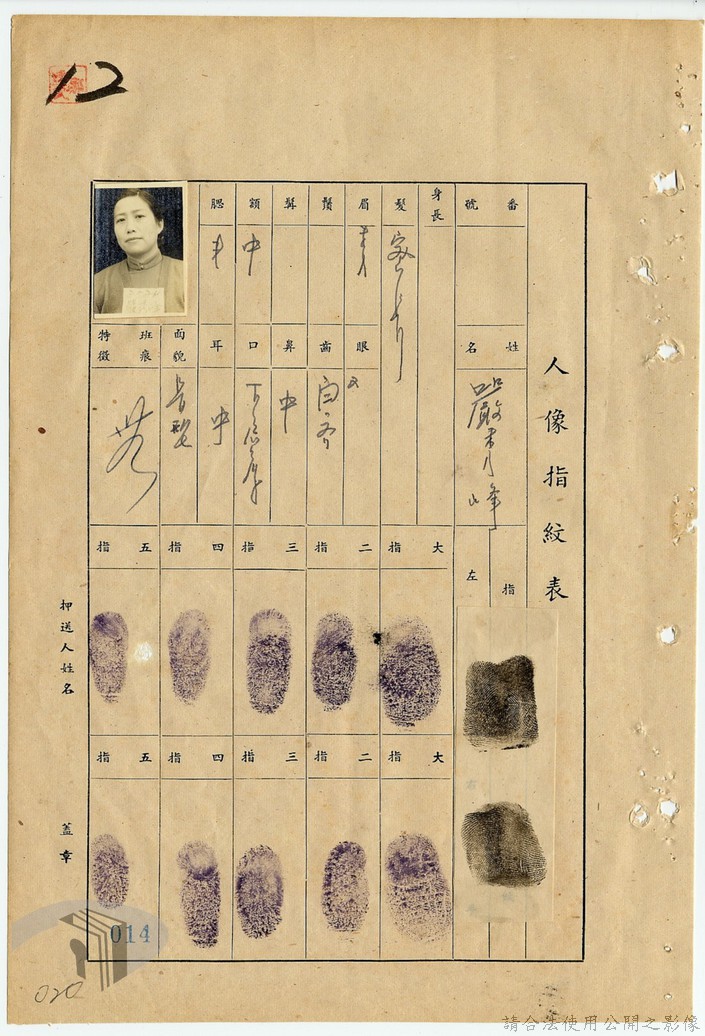 12
人像指紋表
番號
姓名
嚴秀峰
身長
髮
眉
鬚
鬂
額
中
腮
眼
齒
白齐
鼻
中
口
耳
中
面貌
長型
班痕
特徵
無
指
左
大指
二指
三指
四指
五指
大指
二指
三指
四指
五指
押送人姓名
蓋章
014
020
請合法使用公開之影像